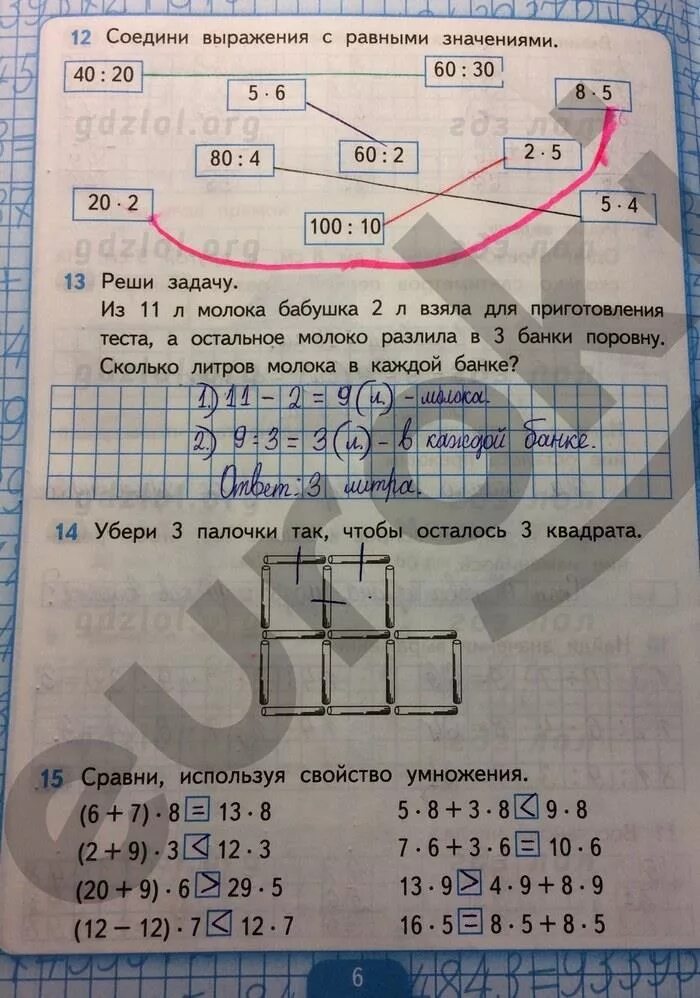 12 Соедини выражения с равными значениями.
40 : 20
60 : 30
5 · 6
8 · 5
80 : 4
60 : 2
2 · 5
20 · 2
100 : 10
5 · 4
gdzlol.org
13 Реши задачу.
Из 11 л молока бабушка 2 л взяла для приготовления
теста, а остальное молоко разлила в 3 банки поровну.
Сколько литров молока в каждой банке?
1) 11 - 2 = 9 (л) - молока.
2) 9 : 3 = 3 (л) - в каждой банке.
Ответ: 3 литра.
14 Убери 3 палочки так, чтобы осталось 3 квадрата.
15 Сравни, используя свойство умножения.
(6 + 7) · 8 = 13 · 8
5 · 8 + 3 · 8 < 9 · 8
(2 + 9) · 3 < 12 · 3
7 · 6 + 3 · 6 = 10 · 6
(20 + 9) · 6 > 29 · 5
13 · 9 > 4 · 9 + 8 · 9
(12 − 12) · 7 < 12 · 7
16 · 5 = 8 · 5 + 8 · 5
6
euroki